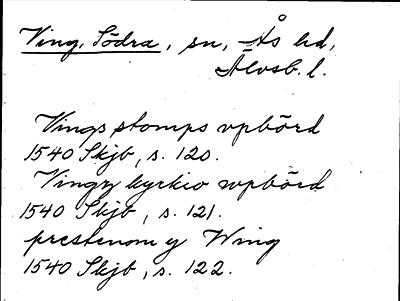 Ving, Södra, sn, Ås hd,
Älvsb. l.
Vings stomps vpbörd
1540 Skjb, s. 120.
Vingz kyrkio wpbörd
1540 Skjb, s. 121.
prestenom y Wing
1540 Skjb, s. 122.